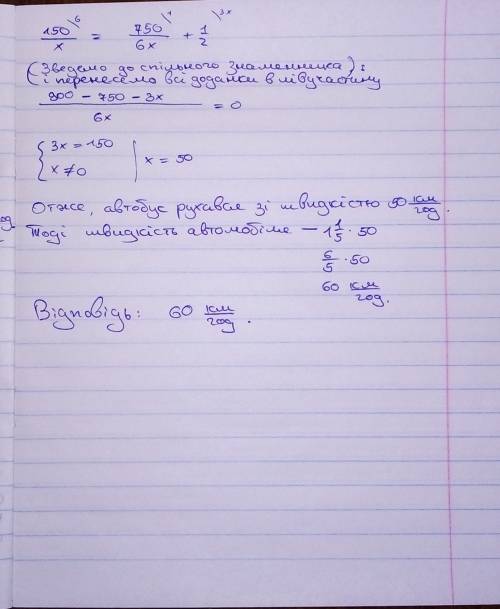 150\6 / x = 750\1 / 6x + 1/2 \3x
(Зведемо до спільного знаменника):
(і перенесемо всі доданки в ліву частину
900 - 750 - 3x / 6x = 0
{ 3x = 150 | x = 50
x ≠ 0
Отже, автобус рухався зі швидкістю 50 км/год.
Тоді швидкість автомобіля - 1 1/5 · 50
6/5 · 50
60 км/год.
Відповідь: 60 км/год.